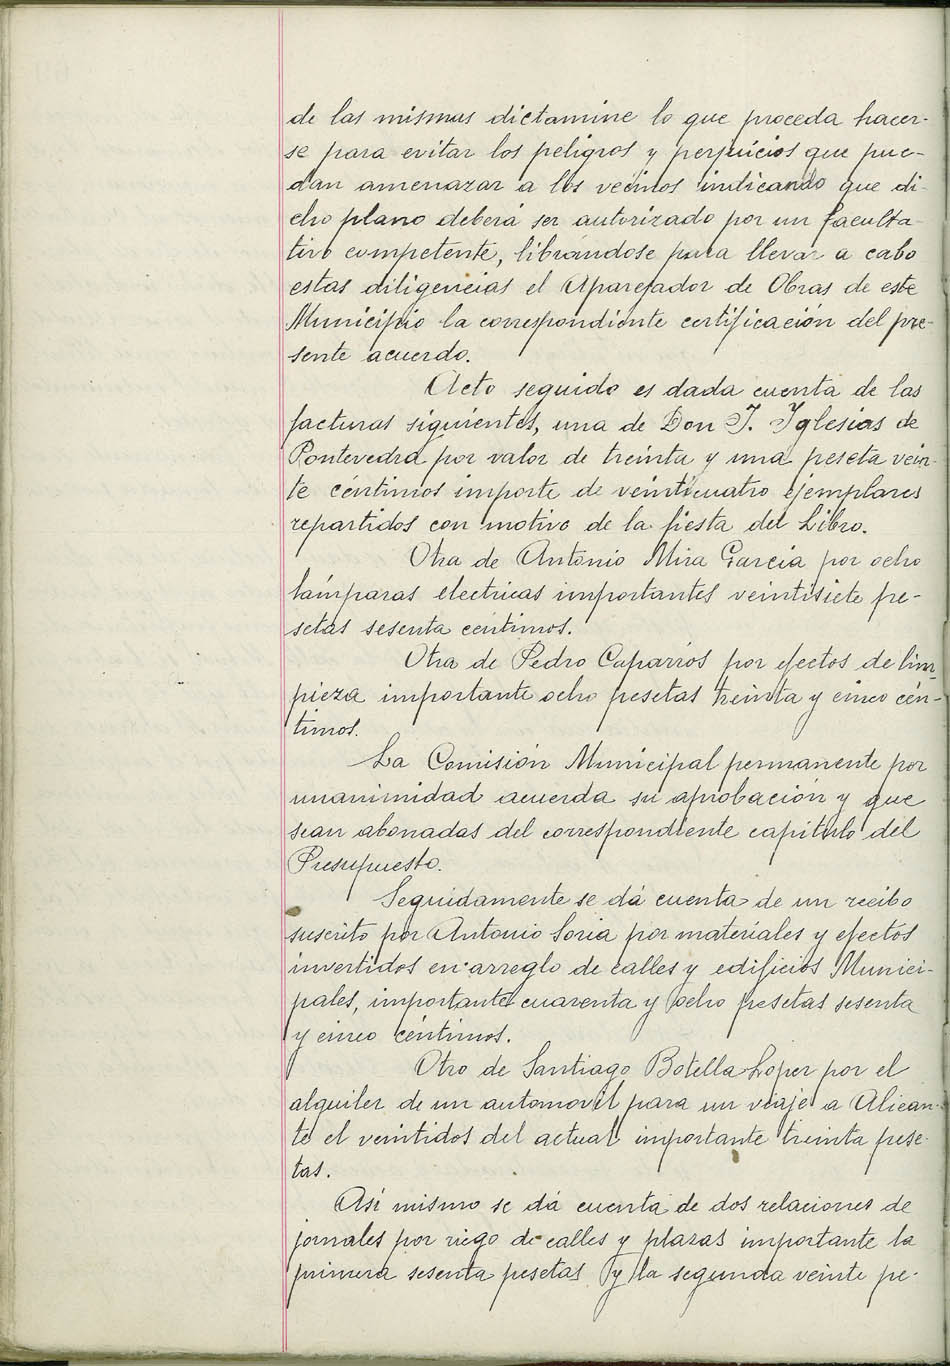 de las mismas dictamine lo que proceda hacer-
se para evitar los peligros y perjuicios que pue-
dan amenazar a los vecinos indicando que di-
cho plano deberá ser autorizado por un faculta-
tivo competente, librándose para llevar a cabo
estas diligencias el Aparejador de Obras de este
Municipio la correspondiente certificación del pre-
sente acuerdo.
Acto seguido es dada cuenta de las
facturas siguientes, una de Don J. Iglesias de
Pontevedra por valor de treinta y una peseta vein-
te céntimos importe de veinticuatro ejemplares
repartidos con motivo de la fiesta del Libro.
Otra de Antonio Mira García por ocho
lámparas electricas importantes veintisiete pe-
setas sesenta centimos.
Otra de Pedro Caparrós por efectos de lim-
pieza importante ocho pesetas treinta y cinco cén-
timos.
La Comisión Municipal permanente por
unanimidad acuerda su aprobación y que
sean abonadas del correspondiente capitulo del
Presupuesto.
Seguidamente se dá cuenta de un recibo
suscrito por Antonio Soria por materiales y efectos
invertidos en arreglo de calles y edificios Munici-
pales, importante cuarenta y ocho pesetas sesenta
y cinco céntimos.
Otro de Santiago Botella Loper por el
alquiler de un automovil para un viaje a Alican-
te el veintidos del actual importante treinta pese-
tas.
Así mismo se dá cuenta de dos relaciones de
jornales por riego de calles y plazas importante la
primera sesenta pesetas y la segunda veinte pe-